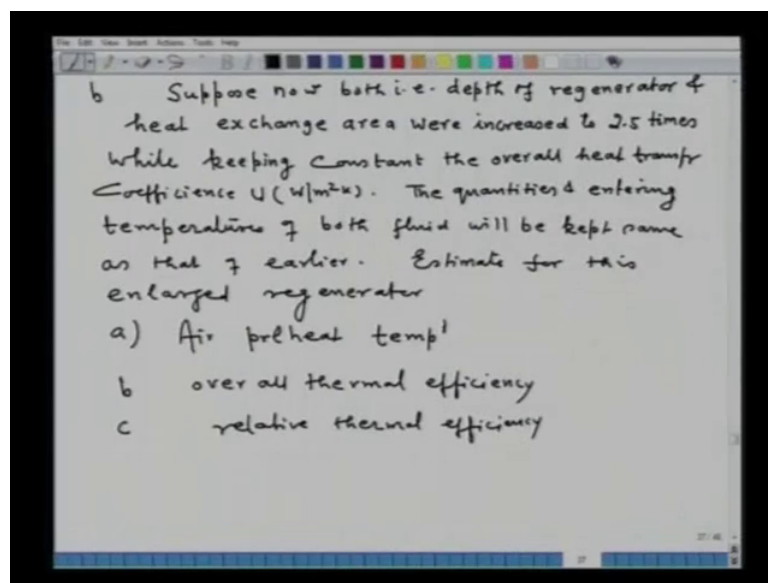 File Edit View Insert Actions Tools Help
b Suppose now both i.e. depth of regenerator &
heat exchange area were increased to 2.5 times
while keeping constant the overall heat transfr
Coefficience U (W/m²K). The quantities & entering
temperatures of both fluid will be kept same
as that of earlier. Estimate for this
enlarged regenerator
a) Air preheat temp
b over all thermal efficiency
c relative thermal efficiency